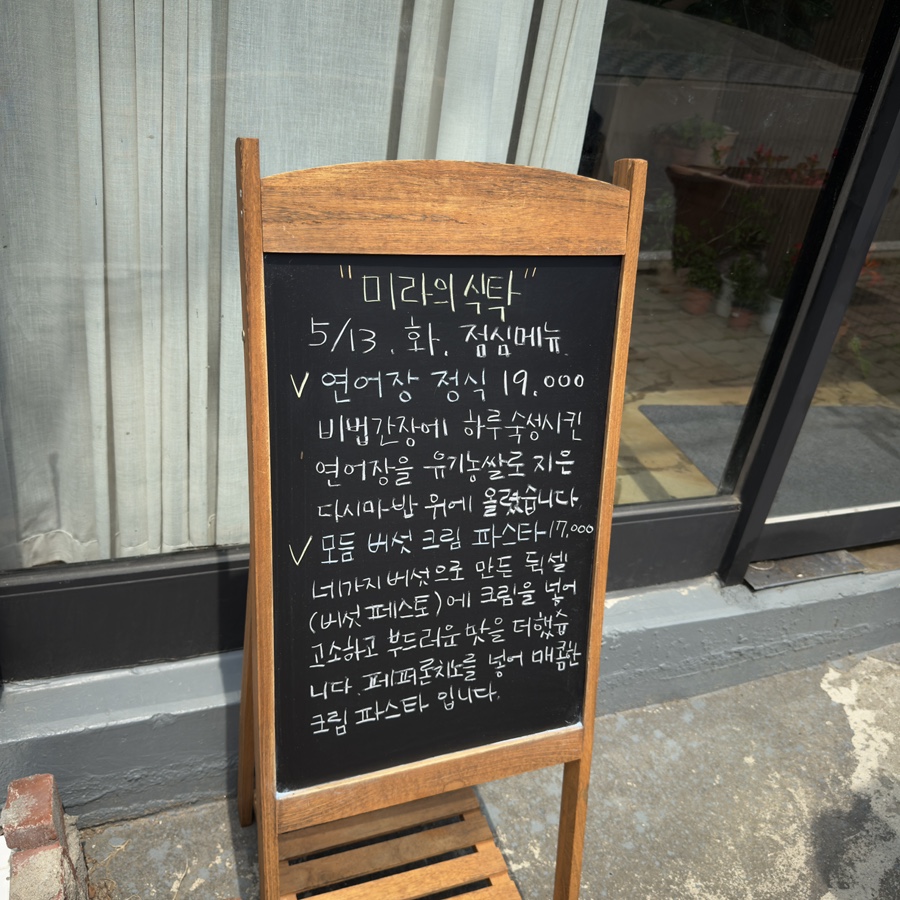 "미라의 식탁"
5/13. 화. 점심메뉴.
✓ 연어장 정식 19.000
비법간장에 하루숙성시킨
연어장을 유기농쌀로 지은
다시마밥 위에 올렸습니다.
✓ 모듬 버섯 크림 파스타 17.000
네가지버섯으로 만든 뒥셀
(버섯페스토)에 크림을 넣어
고소하고 부드러운 맛을 더했습
니다. 페퍼론치노를 넣어 매콤한
크림 파스타 입니다.